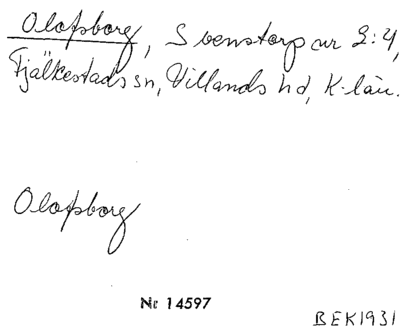 Olofsborg, Svenstorp nr 2:4,
Fjälkestads sn, Villands hd, K-län.
Olofsborg
Nr 14597
BEK1931